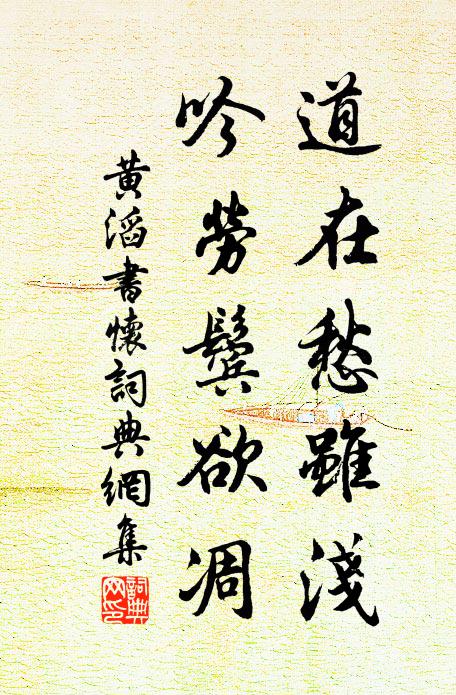 道在愁雖淺
吟勞鬢欲凋
黄滔書懷詞典網集
詞典網印